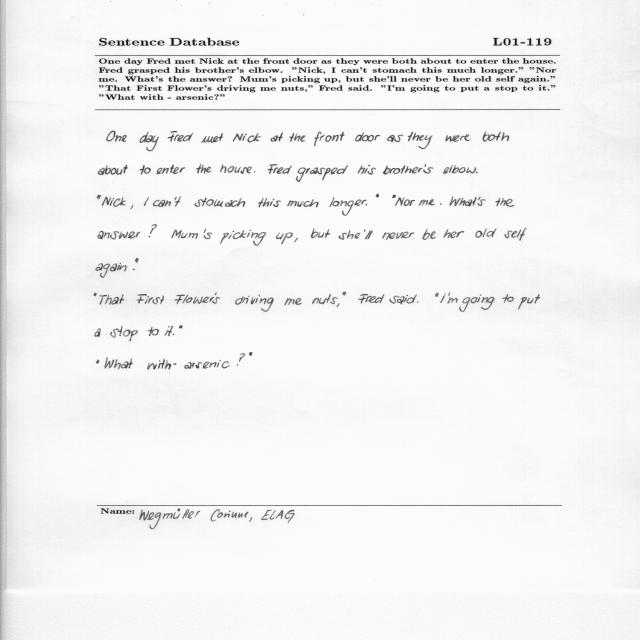 Sentence Database L01-119
One day Fred met Nick at the front door as they were both about to enter the house.
Fred grasped his brother's elbow. "Nick, I can't stomach this much longer." "Nor
me. What's the answer? Mum's picking up, but she'll never be her old self again."
"That First Flower's driving me nuts," Fred said. "I'm going to put a stop to it."
"What with - arsenic?"
One day Fred met Nick at the front door as they were both
about to enter the house. Fred grasped his brother's elbow.
"Nick, I can't stomach this much longer." "Nor me. What's the
answer? Mum's picking up, but she'll never be her old self
again."
"That First Flower's driving me nuts," Fred said. "I'm going to put
a stop to it."
"What with - arsenic?"
Name: Wegmüller Corinne, ELAG